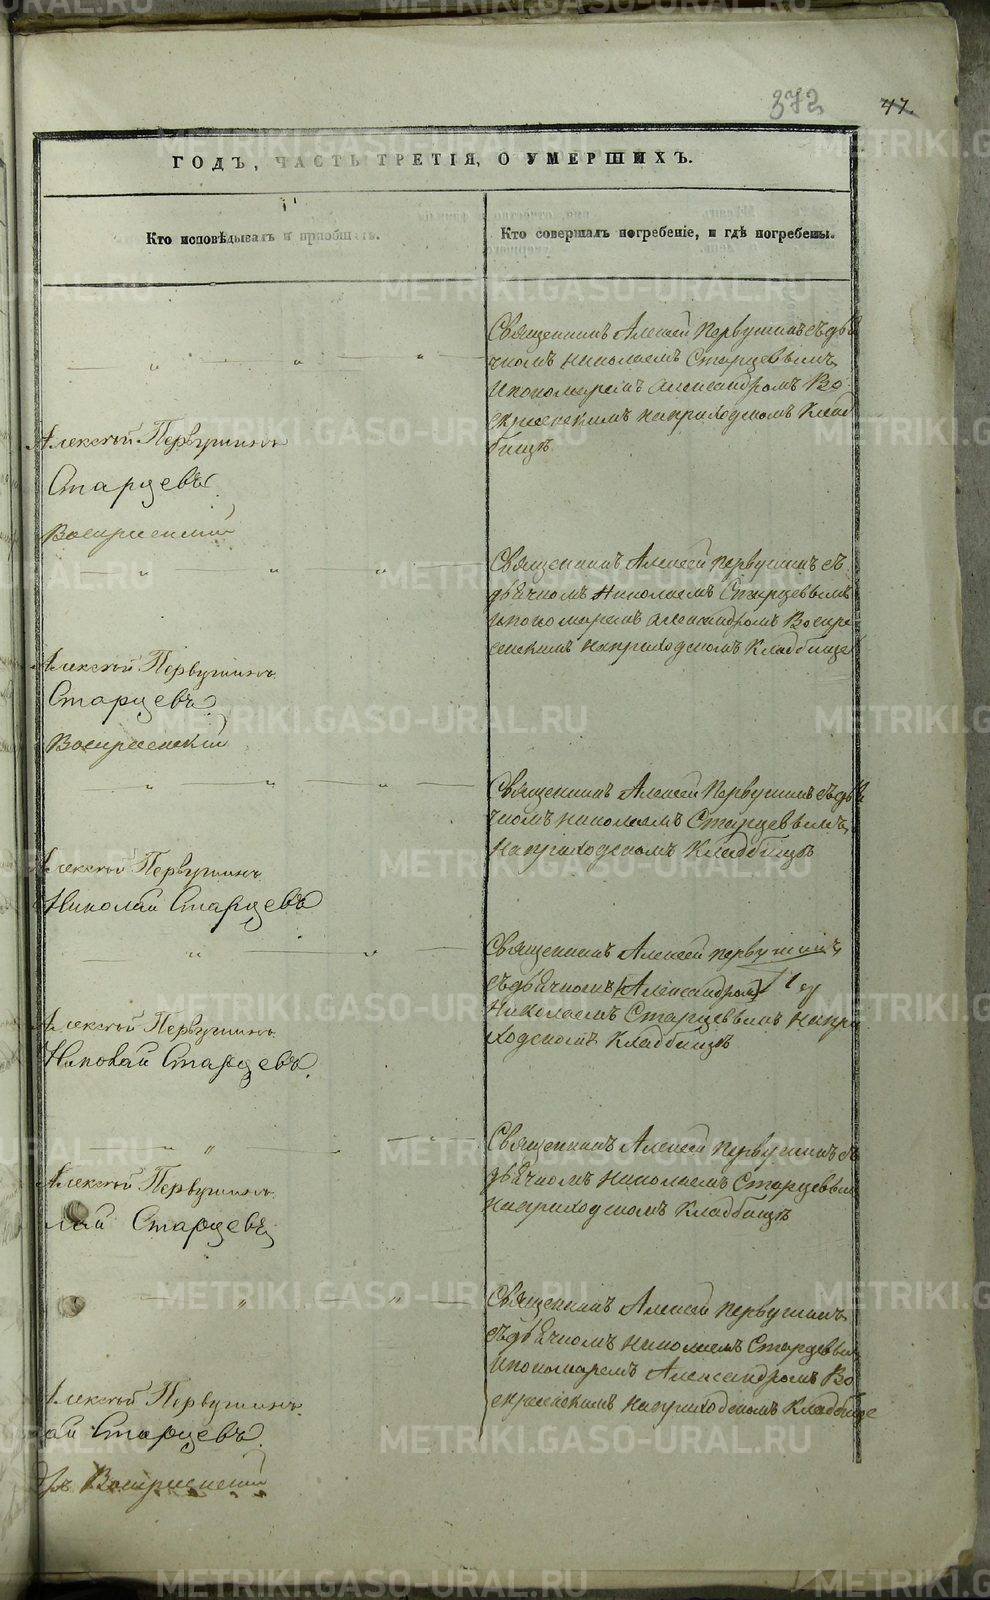 372 47.
ГОДЪ, ЧАСТЬ ТРЕТІЯ, О УМЕРШИХЪ.
Кто исповѣдывалъ и пріобщалъ.
Кто совершалъ погребеніе, и гдѣ погребены.
Священникъ Алексѣй Первушинъ съ дья
чкомъ Николаемъ Старцевымъ
и пономаремъ Александромъ Во
скресенскимъ на приходскомъ клад
бищѣ
Алексѣй Первушинъ
Старцевъ
Воскресенскій
Священникъ Алексѣй Первушинъ съ
дьячкомъ Николаемъ Старцевымъ
и пономаремъ Александромъ Воскре
сенскимъ на приходскомъ кладбище
Алексѣй Первушинъ
Старцевъ
Воскресенскій
Священникъ Алексѣй Первушинъ съ дья
чкомъ Николаемъ Старцевымъ
на приходскомъ кладбищѣ
Алексѣй Первушинъ
Николай Старцевъ
Священникъ Алексѣй Первушинъ
съ дьячкомъ [Александром]
Николаемъ Старцевымъ на при
ходскомъ кладбищѣ
Алексѣй Первушинъ
Николай Старцевъ.
Священникъ Алексѣй Первушинъ съ
дьячкомъ Николаемъ Старцевым
на приходскомъ кладбищѣ
Алексѣй Первушинъ
лай Старцевъ
Священникъ Алексѣй Первушинъ
съ дьячкомъ Николаемъ Старцевым
и пономаремъ Александромъ Во
скресенскимъ на приходскомъ кладбище
Алексѣй Первушинъ
ай Старцевъ
ръ Воскресенскій
METRIKI.GASO-URAL.RU